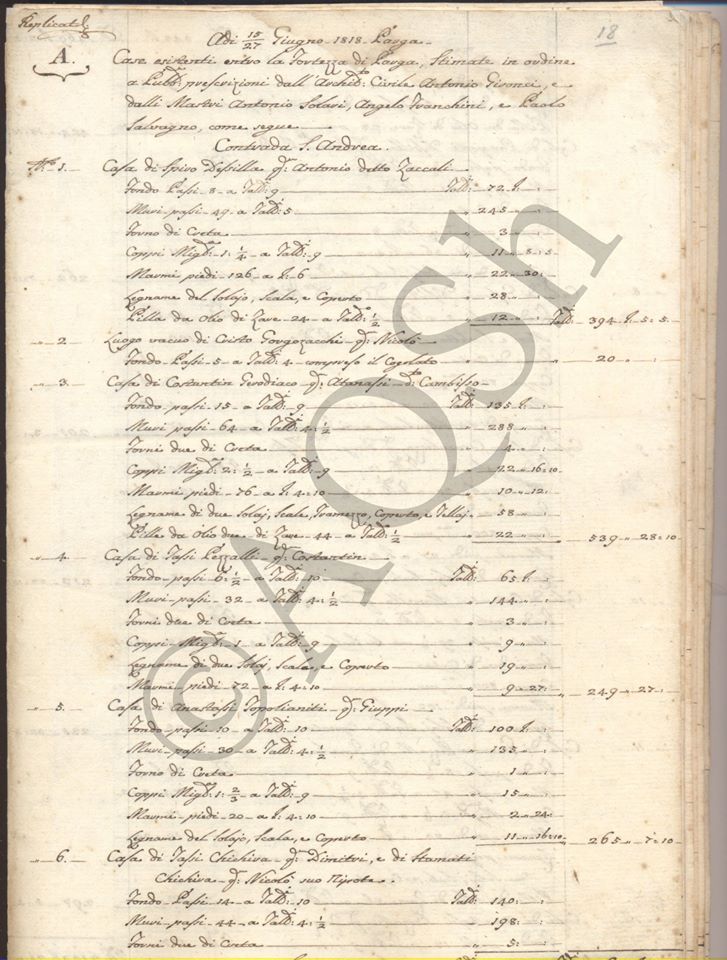 Replicata
18
A.
Adi 15/27 Giugno 1818 Parga
Case esistenti entro la Fortezza di Parga, Stimate in ordine
a Pubb: prescrizioni dall' Archit:to Civile Antonio Gironci, e
dalli Mastri Antonio Solari, Angelo Franchini, e Paolo
Salvagno, come segue
Contrada S. Andrea.
N:o 1. Casa di Spiro Dessilla q: Antonio detto Zaccali
Fondo Passi 8 a Tall: 9 Tall: 72 P. :
Muri passi 49 a Tall: 5 " 245 " :
Forno di Creta " 3 " :
Coppi Migl: 1: 1/4 a Tall: 9 " 11 " 8: 5
Marmi piedi 126 a P: 6 " 22 " 30:
Legname del Solajo, Scala, e Coperto " 28 " :
Pilla da Olio di Zare 24 a Tall: 1/2 " 12 " : Tall: 394 P: 5: 5
" 2. Luogo vacuo di Cristo q: Nicolò
Fondo Passi 5 a Tall: 4 compreso il " 20 " :
" 3. Casa di Costantin q: Atanassi d:to
Fondo passi 15 a Tall: 9 Tall: 135 P. :
Muri passi 64 a Tall: 4: 1/2 " 288 " :
Forni due di Creta " 4 " :
Coppi Migl: 2: 1/2 a Tall: 9 " 22 " 16: 10
Marmi piedi 76 a P: 4: 10 " 10 " 12:
Legname di due Solaj, Scale, Tramezzo, Coperto, e Tellaj " 58 " :
Pille da Olio due di Zare 44 a Tall: 1/2 " 22 " : " 539 " 28: 10
" 4. Casa di Tassi Pezzalli q: Costantin
Fondo passi 6: 1/2 a Tall: 10 Tall: 65 P. :
Muri passi 32 a Tall: 4: 1/2 " 144 " :
Forni due di Creta " 3 " :
Coppi Migl: 1 a Tall: 9 " 9 " :
Legname di due Solaj, Scala, e Coperto " 19 " :
Marmi piedi 72 a P: 4: 10 " 9 " 27: " 249 " 27 :
" 5. Casa di Anastassi q: Giuppi
Fondo passi 10 a Tall: 10 Tall: 100 P. :
Muri passi 30 a Tall: 4: 1/2 " 135 " :
Forno di Creta " 1 " :
Coppi Migl: 1: 2/3 a Tall: 9 " 15 " :
Marmi piedi 20 a P: 4: 10 " 2 " 24:
Legname del Solajo, Scala, e Coperto " 11 " 16: 10 " 265 " 7: 10
" 6. Casa di Tassi Chichira q: Dimitri, e di Stamati
Chichira q: Nicolò suo Nipote.
Fondo Passi 14 a Tall: 10 Tall: 140: :
Muri passi 44 a Tall: 4: 1/2 " 198: :
Forni due di Creta " 5: :
© AQSH